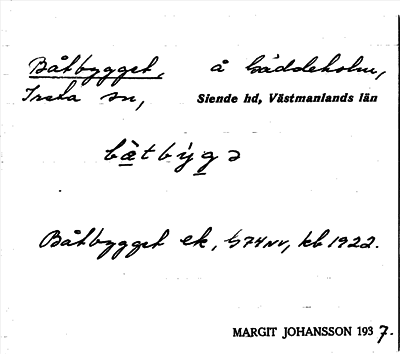 Båtbygget, å Gäddeholm,
Irsta sn, Siende hd, Västmanlands län
bå̀tbýgə
Båtbygget ek, G74NV, kb 1922.
MARGIT JOHANSSON 1937.